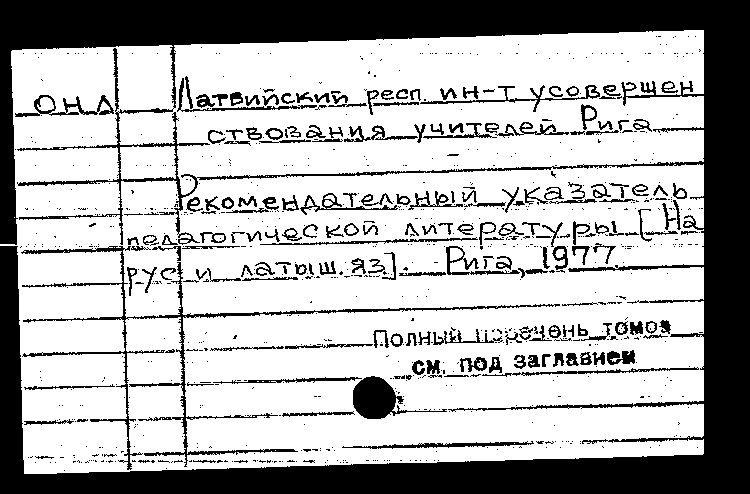 ОНЛ Латвийский респ. ин-т усовершен
ствования учителей Рига
Рекомендательный указатель
педагогической литературы [На
рус и латыш. яз]. Рига, 1977
Полный перечень томов
см. под заглавием